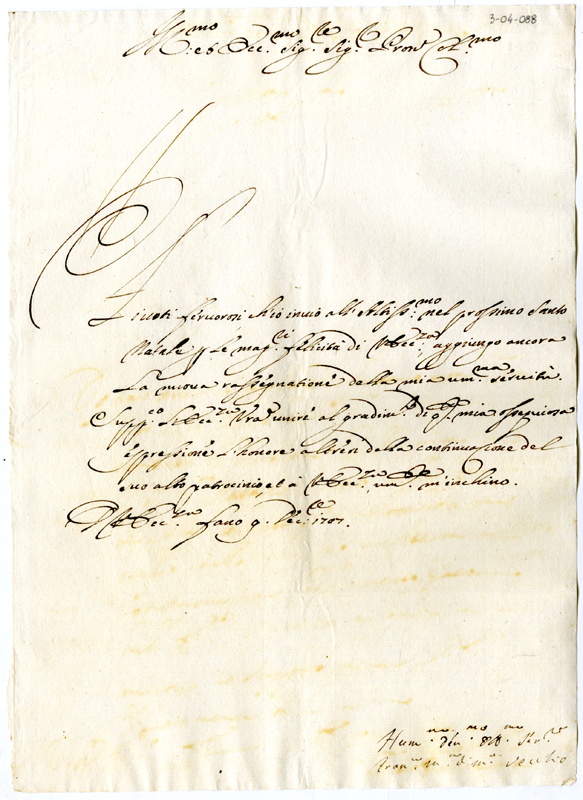 3-04-088
Ill.mo et Ecc.mo Sig.re Sig.re Pron.e Col.mo
A i voti fervorosi ch'io invio all'Altiss.mo nel prossimo Santo
Natale p le mag.ri felicità di V. Ecc.za, aggiungo ancora
la nuova rassegnatione della mia um.ma servitù.
Supp.co l'Ecc.za Vra unire al gradim.to di q.ta mia ossequiosa
espressione l'honore altresì della continuazione del
suo alto patrocinio, et à V. Ecc.za um.te m'inchino.
D V. Ecc.za Fano 9. Dec.bre 1707.
Hum.mo Dev.mo Obb.mo Ser.re